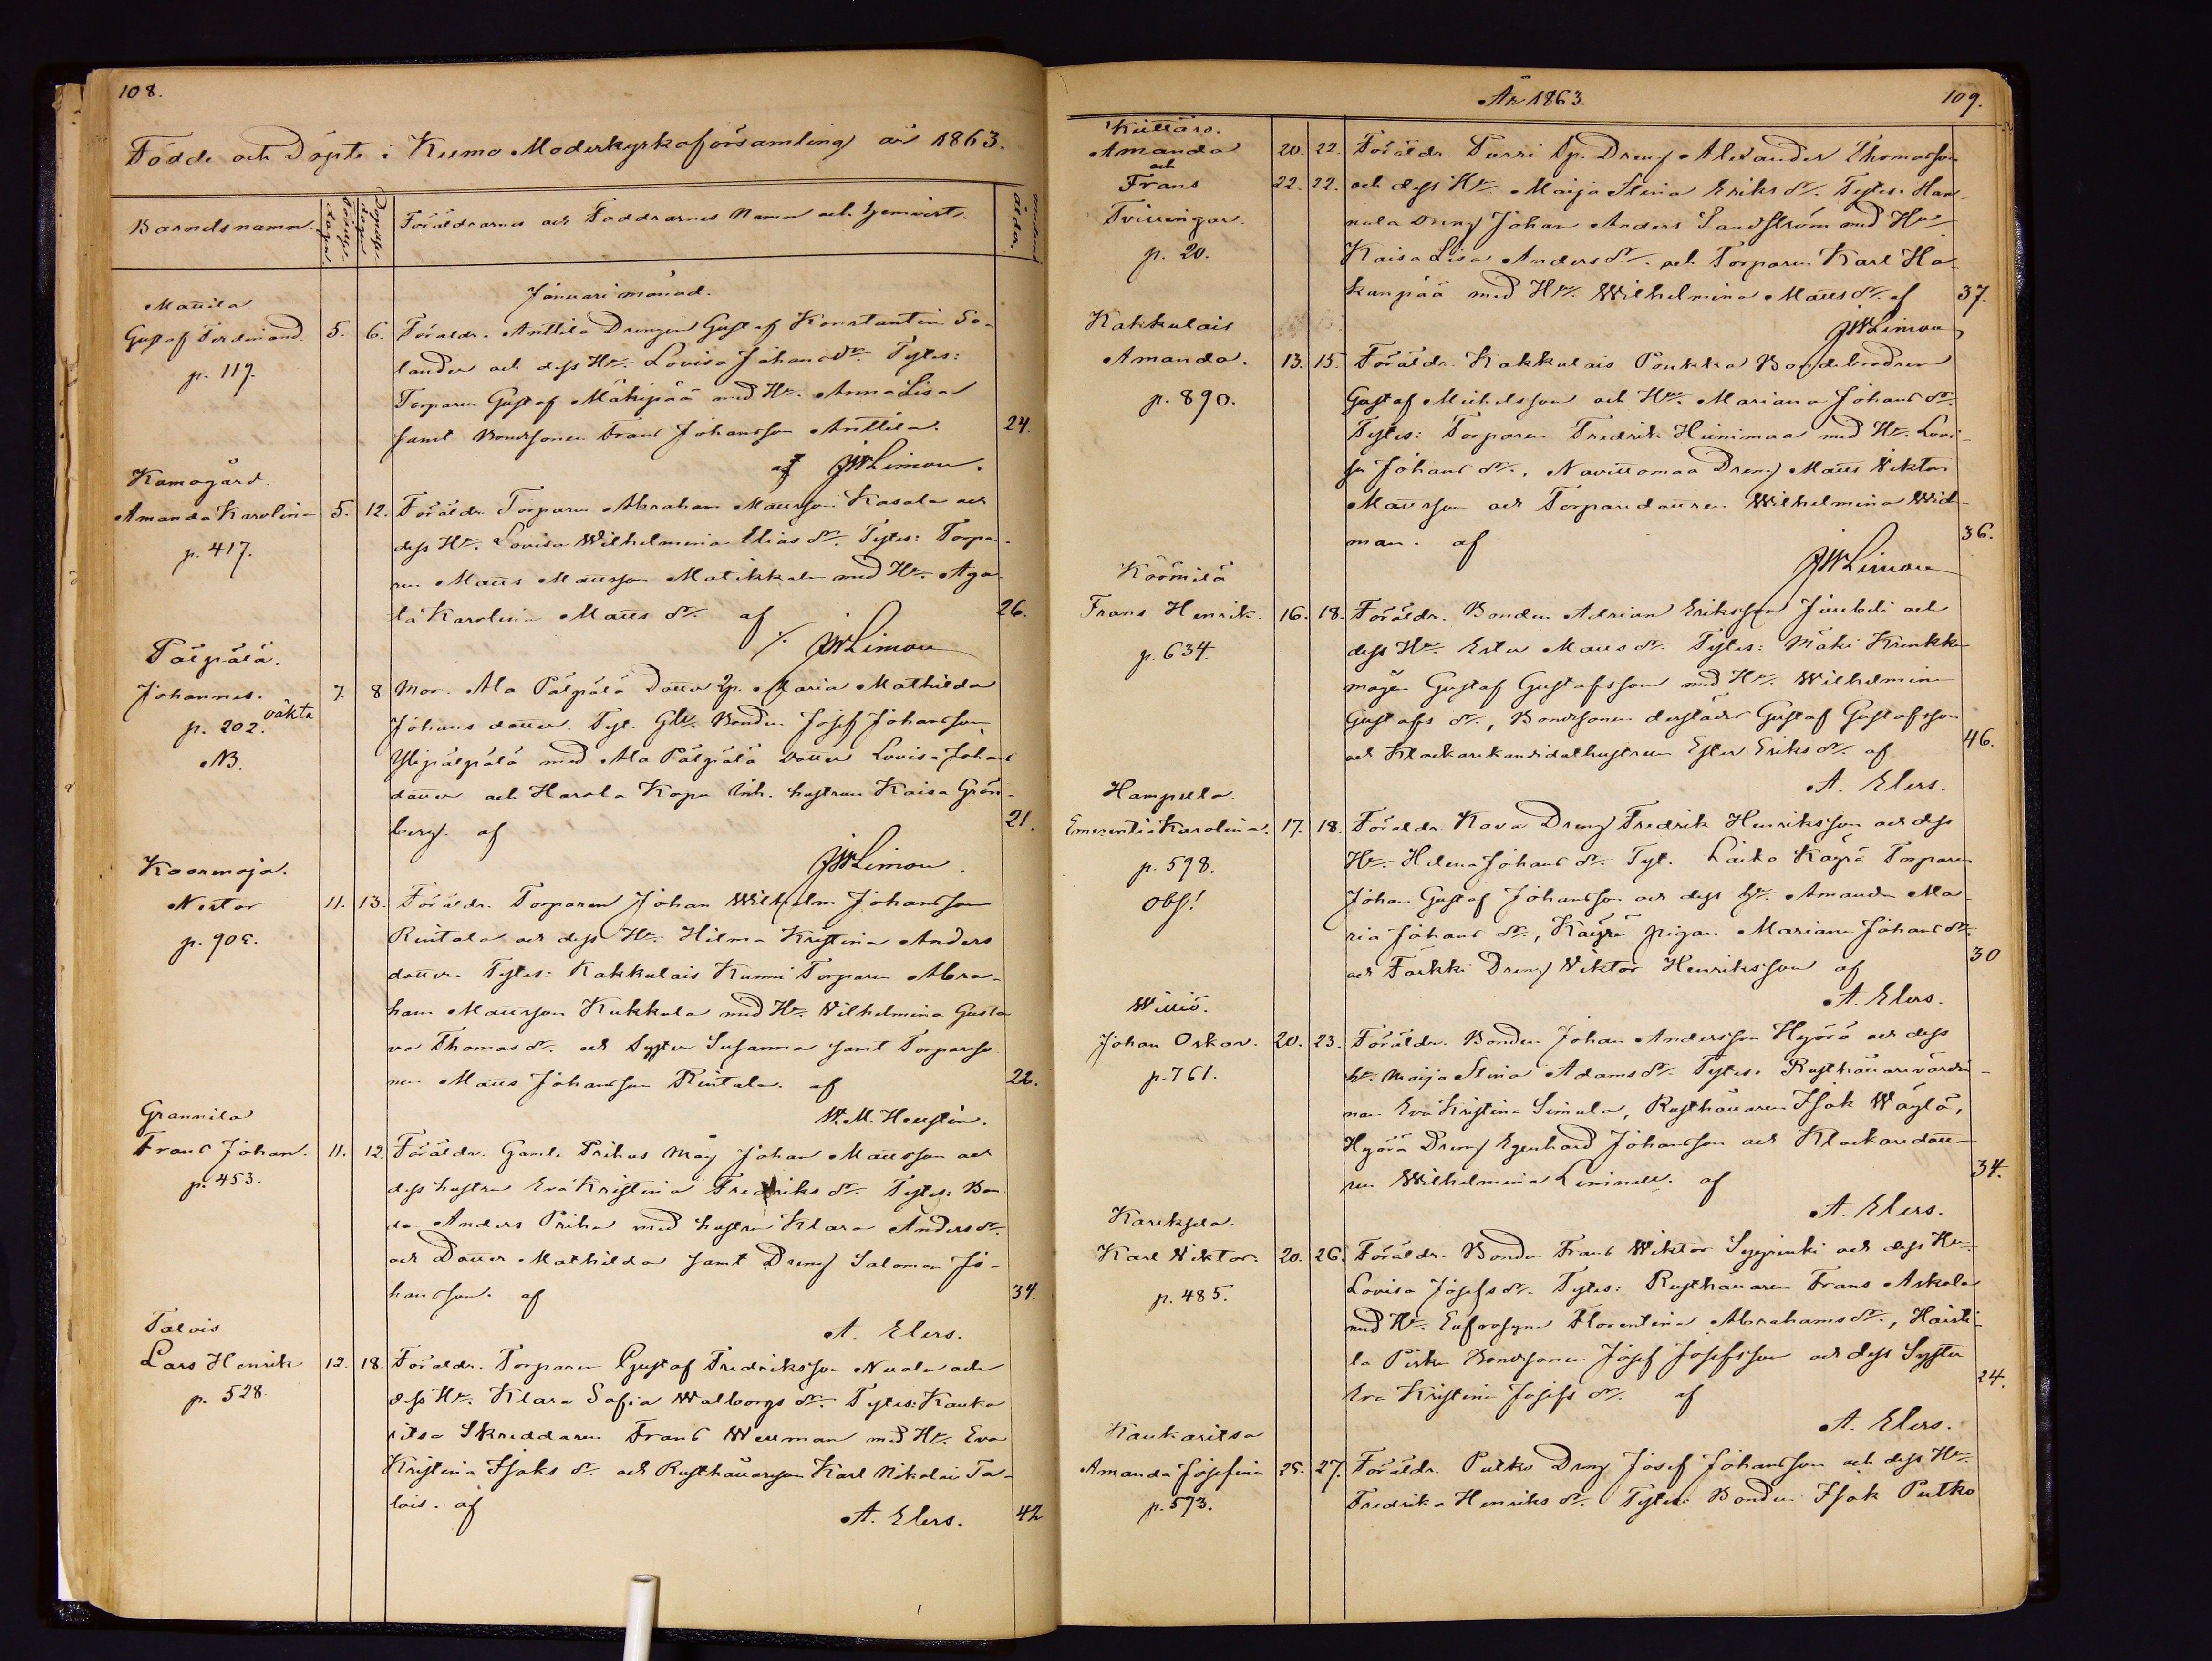 108.
Födde och Döpte i Kumo Moderkyrkoförsamling år 1863.
Barnets namn.
Föräldrarnes och Faddrarnes Namn och hemvist.
Moderns ålder.
Januari månad.
Mattila
Gustaf Ferdinand. 5. 6. Föräldr. Anttila Drengen Gustaf Konstantin So-
p. 119. lander och dess Hu. Lovisa Johans dr. Tytes:
Torparen Gustaf Mäkipää med Hu. Anna Lisa
samt Bondsonen Frans Johansson Anttila. 24.
af JWLimon.
Kumogård.
Amanda Karolina 5. 12. Föräldr. Torparen Abraham Mattsson Kasala och
p. 417. dess Hu. Lovisa Wilhelmina Elias dr. Tytes: Torpa-
ren Matts Mattsson Matikkala med Hu. Aga-
ta Karolina Matts dr. af 26.
JWLimon
Pälpälä.
Johannes. 7. 8. Mor. Ala Pälpälä Dotter Ip. Maria Mathilda
oäkta
p. 202. Johans dotter. Tyt. Glv. Bonden Josef Johansson
NB. Ylipälpälä med Ala Pälpälä dotter Lovisa Johans
dotter och Harola Kopu Inh. hustrun Kaisa Grön-
berg. af 21.
JWLimon.
Kaormoja.
Nestor 11. 13. Föräldr. Torparen Johan Wilhelm Johansson
p. 902. Rintala och dess Hu. Hilma Kristina Anders
dotter. Tytes: Kakkulais Kunni Torparen Abra-
ham Mattsson Kukkula med Hu. Wilhelmina Gusta
va Thomas dr. och Syster Susanna samt Torpareso
nen Matts Johansson Rintala. af 22.
W. M. Heustén.
Grannila
Frans Johan. 11. 12. Föräldr. Gamla Prihas Måg Johan Mattsson och
p. 453. dess hustru Eva Kristina Fredriks dr. Tytes: Bon
de Anders Priha med hustru Klara Anders dr.
och Dotter Mathilda samt Dreng Salomon Jo-
hansson. af 34.
A. Elers.
Talois
Lars Henrik 12. 18. Föräldr. Torparen Gustaf Fredriksson Nuola och
p. 528. dess Hu. Klara Sofia Walborgs dr. Tytes: Kauka
ritsa Skreddaren Frans Werman med Hu. Eva
Kristina Isaks dr. och Rusthållareson Karl Nikolai Ta-
lois. af 42
A. Elers.
År 1863. 109.
Küttäro.
Amanda 20. 22. Föräldr. Purri Sp. Dreng Alexander Thomasson
och
Frans 22. 22. och dess Hu. Maija Stina Eriks dr. Tytes: Han-
Tvillingar. nula Dreng Johan Anders Sandström med Hu
p. 20. Kaisa Lisa Anders dr. och Torparen Karl Ha-
kanpää med Hu. Wilhelmina Matts dr. af 37.
JWLimon
Kakkulais
Amanda. 13. 15. Föräldr. Kakkulais Poukka Bondebrodren
p. 890. Gustaf Michelsson och Hu. Mariana Johans dr.
Tytes: Torparen Fredrik Heinimaa med Hu. Lovi-
sa Johans dr., Navittomaa Dreng Matts Viktor
Mattsson och Torparedottren Wilhelmina Wid-
man. af 36.
JWLimon
Köömilä
Frans Henrik. 16. 18. Föräldr. Bonden Adrian Eriksson Junbeli och
p. 634. dess Hu. Ester Matts dr. Tytes: Mäki Krenkka
mågen Gustaf Gustafsson med Hu. Wilhelmina
Gustafs dr., Bondsonen derstädes Gustaf Gustafsson
och Klockarekandidathustrun Ester Eriks dr. af 46.
A. Elers.
Hampula.
Emerentia Karolina. 17. 18. Föräldr. Kava Dreng Fredrik Henriksson och dess
p. 598. Hu. Helena Johans dr. Tyt. Laiko Käyrä Torparen
Obs! Johan Gustaf Johansson och dess hu. Amanda Ma-
ria Johans dr., Käyrä pigan Mariana Johans dr.
och Farkki Dreng Viktor Henriksson af 30
A. Elers.
Williö.
Johan Oskar. 20. 23. Föräldr. Bonden Johan Andersson Hyörä och dess
p. 761. hu. Maija Stina Adams dr. Tytes: Rusthållarevärdin-
nan Eva Kristina Simula, Rusthållaren Isak Wäylä,
Hyörä Dreng Egenhard Johansson och Klockaredott-
ren Wilhelmina Leninell. af 34.
A. Elers.
Karhela.
Karl Viktor. 20. 26. Föräldr. Bonden Frans Wiktor Sepprinki och dess Hu.
p. 485. Lovisa Josefs dr. Tytes: Rusthållaren Frans Askola
med Hu. Eufrosyne Florentina Abrahams dr., Haisti-
la Pirka Bondsonen Josef Josefsson och dess Syster
Eva Kristina Josefs dr. af 24.
A. Elers.
Kaukaritsa
Amanda Josefina 25. 27. Föräldr. Putko Dreng Josef Johansson och dess Hu.
p. 573. Fredrika Henriks dr. Tytes: Bonden Isak Putko